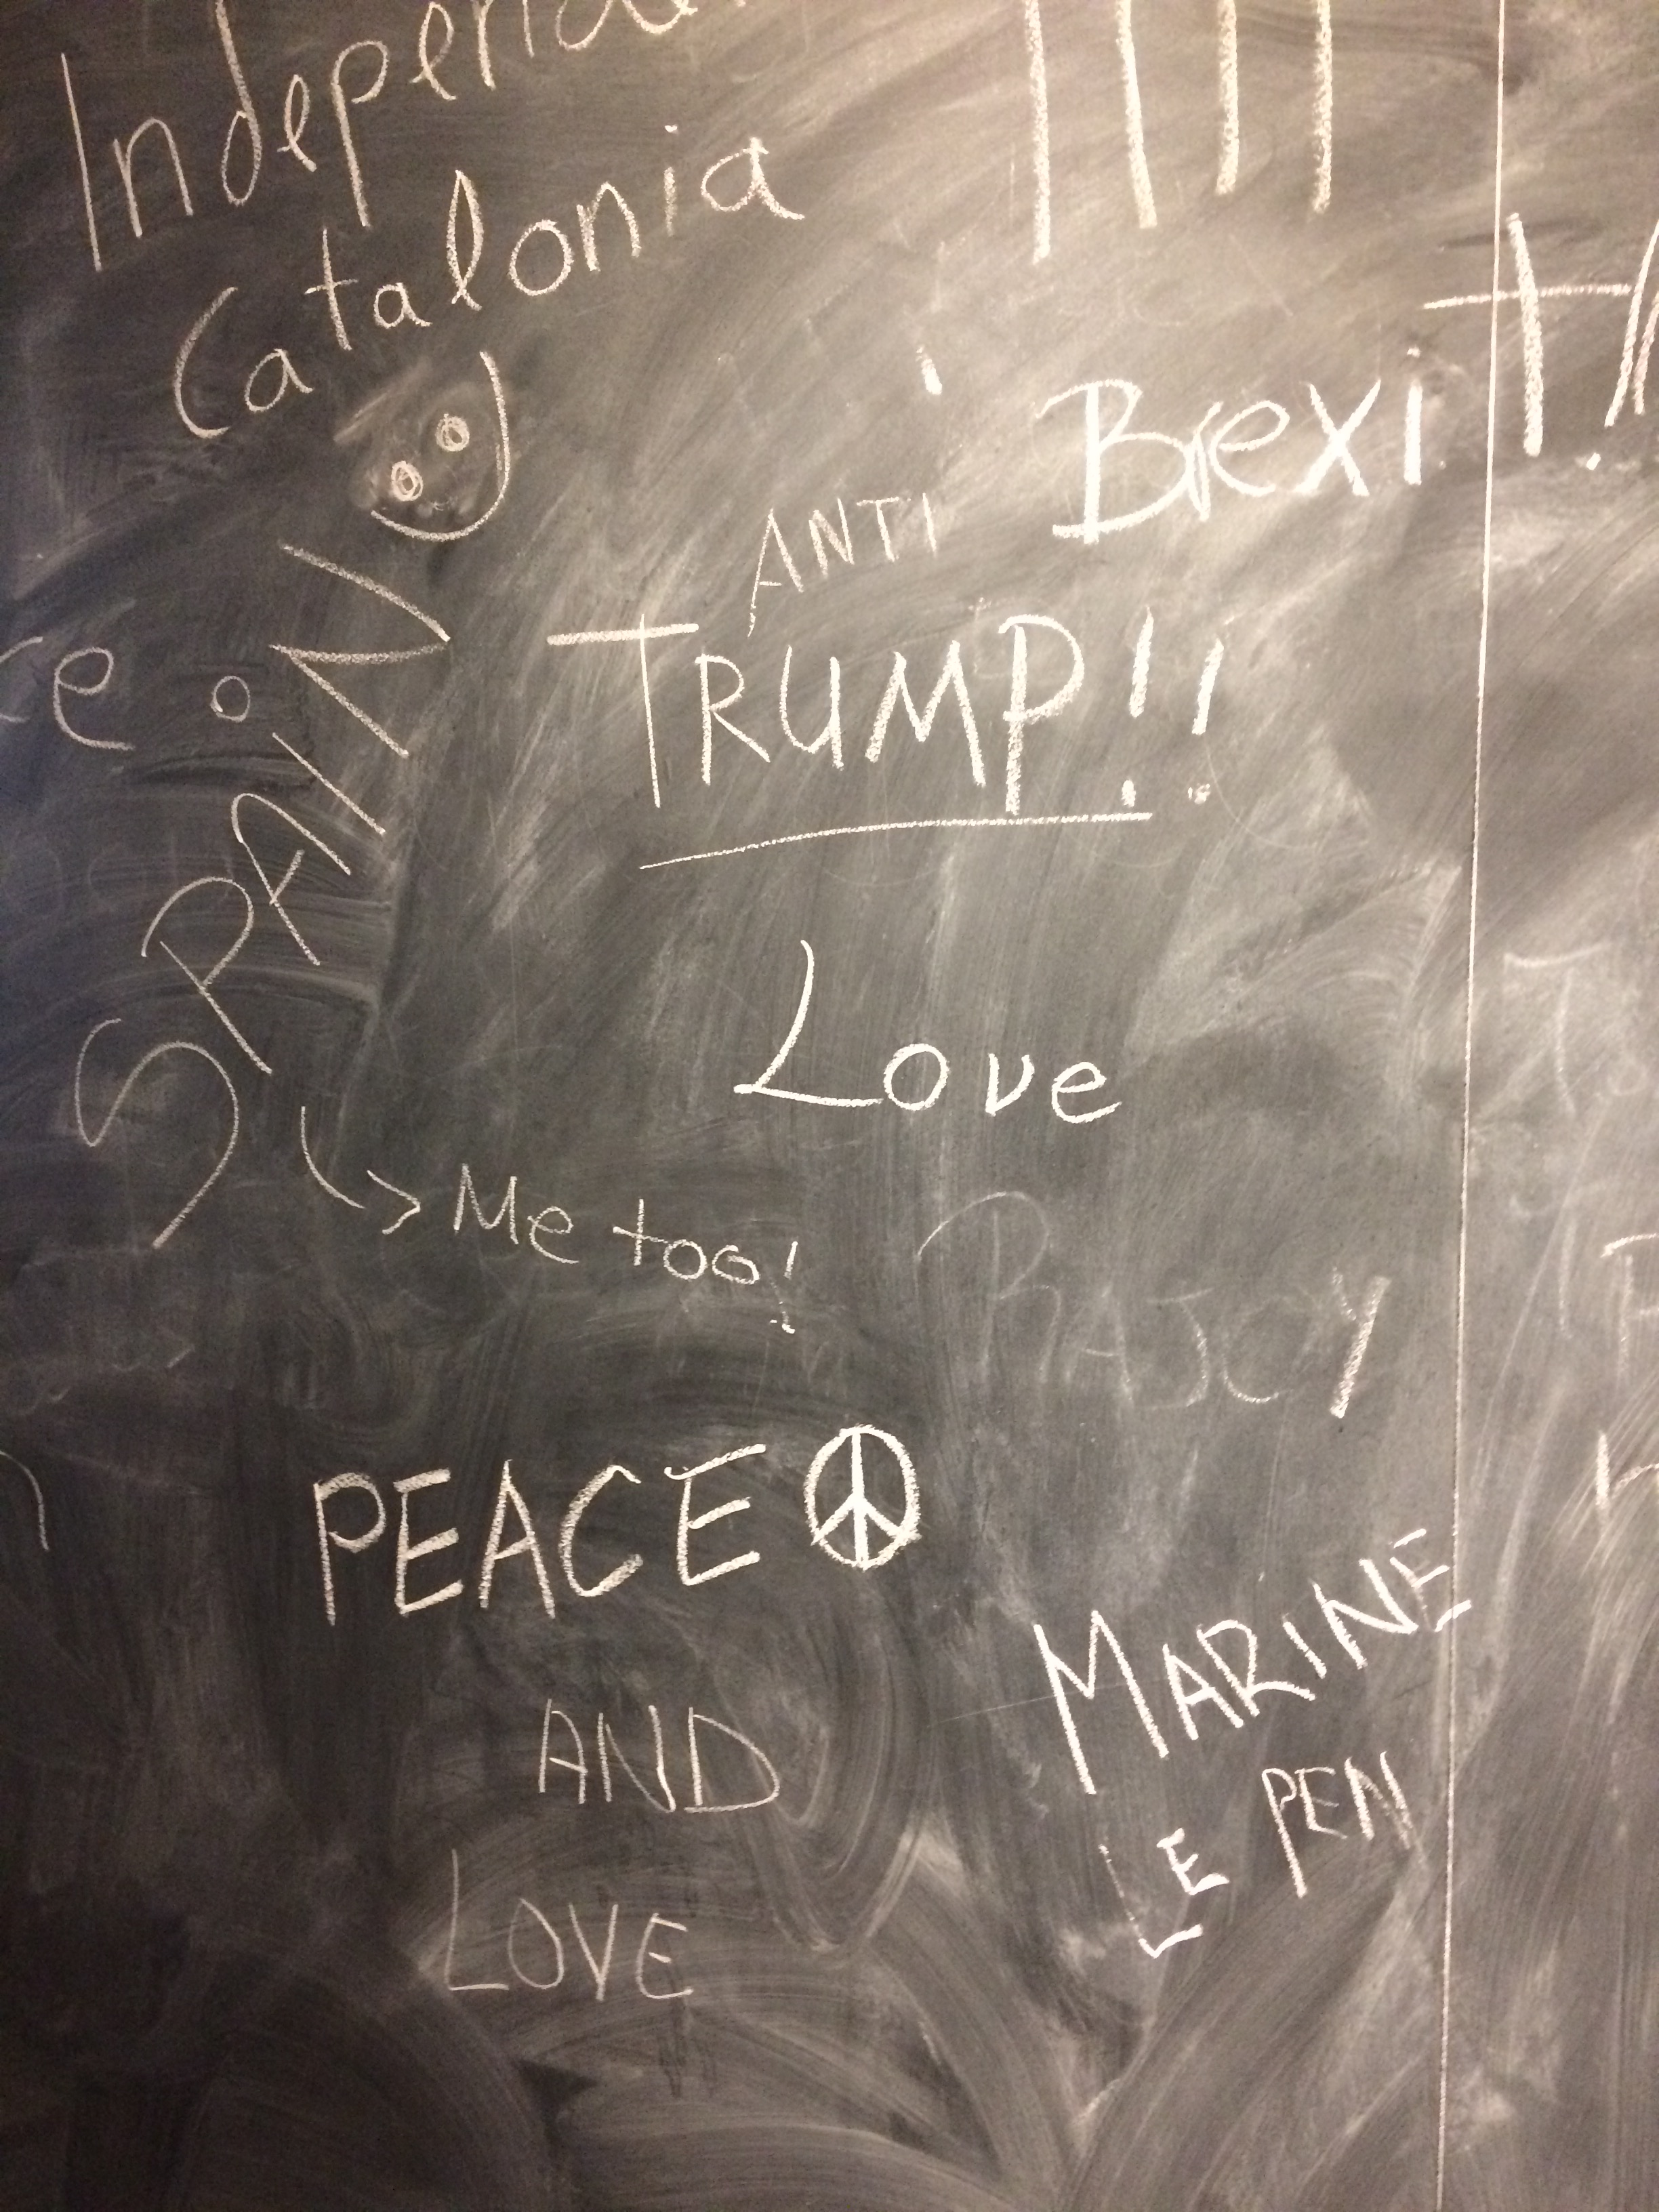 Catalonia
Brexit
ANTI
TRUMP!!
SPAIN
Love
Me too!
RAJOY
PEACE
AND
LOVE
MARINE
LE PEN